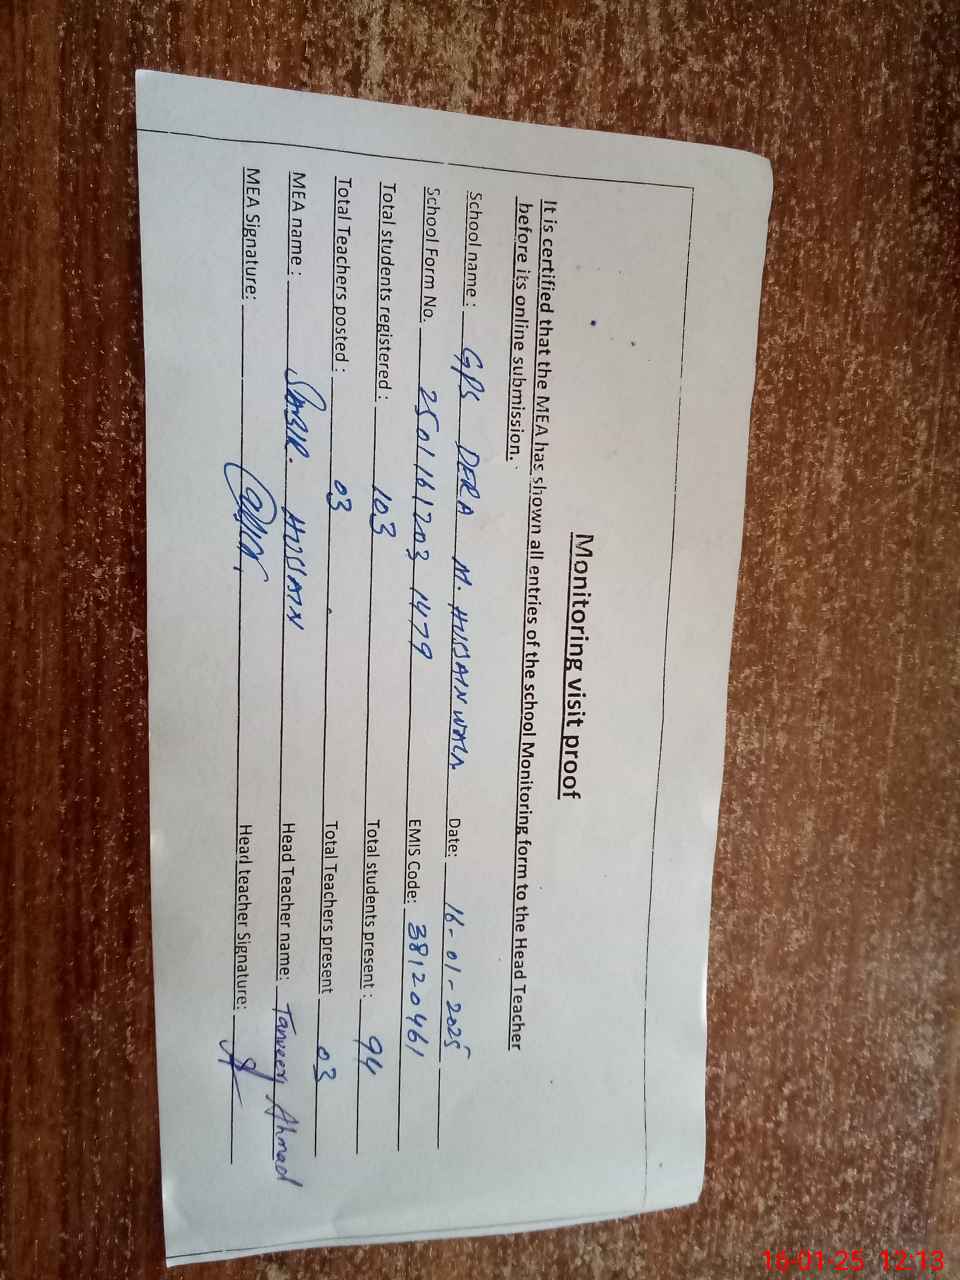 Monitoring visit proof
It is certified that the MEA has shown all entries of the school Monitoring form to the Head Teacher
before its online submission.
School name : GPS DERA M. HUSSAIN WALA Date: 16-01-2025
School Form No. 2501161203 1479 EMIS Code: 38120461
Total students registered : 103 Total students present : 94
Total Teachers posted : 03 Total Teachers present 03
MEA name : SABIR. HUSSAIN Head Teacher name: Tanveer Ahmad
MEA Signature: Head teacher Signature:
16-01-25 12:13